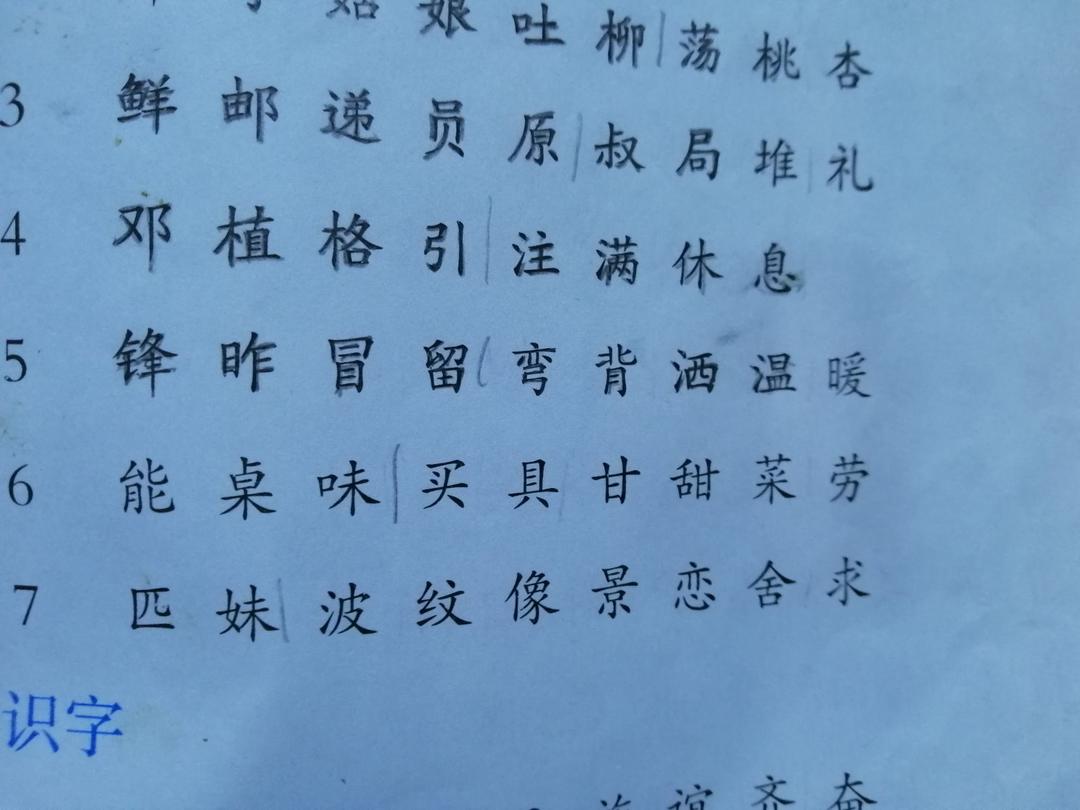 姑 娘 吐 柳 荡 桃 杏
3 鲜 邮 递 员 原 叔 局 堆 礼
4 邓 植 格 引 注 满 休 息
5 锋 昨 冒 留 弯 背 洒 温 暖
6 能 桌 味 买 具 甘 甜 菜 劳
7 匹 妹 波 纹 像 景 恋 舍 求
识字
谊 齐 奋